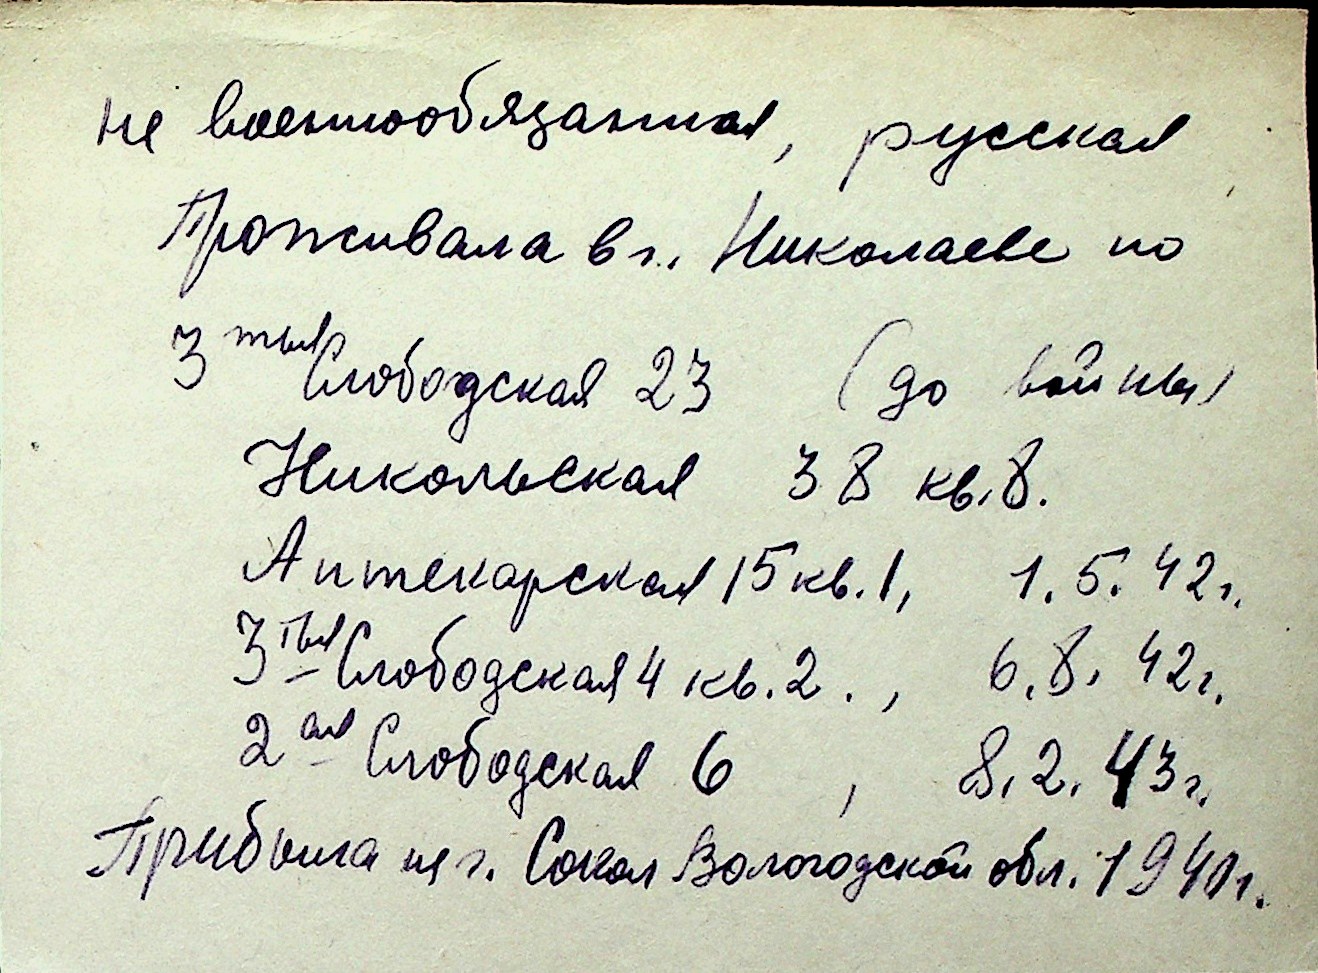 не военнообязанная, русская
Проживала в г. Николаеве по
3тья Слободская 23 (до войны)
Никольская 38 кв. 8.
Аптекарская 15 кв. 1, 1. 5. 42 г.
3тья Слободская 4 кв. 2., 6. 8. 42 г.
2ая Слободская 6, 8. 2. 43 г.
Прибыла из г. Сокол Вологодской обл. 1940 г.